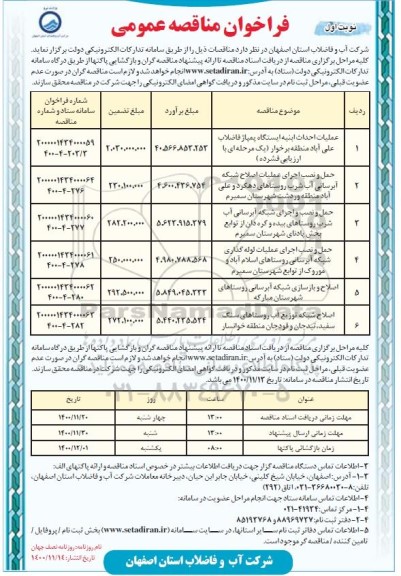 نوبت اول
فراخوان مناقصه عمومی
شرکت آب و فاضلاب استان اصفهان در نظر دارد مناقصات ذیل را از طریق سامانه تدارکات الکترونیکی دولت برگزار نماید.
کلیه مراحل برگزاری مناقصه از دریافت اسناد مناقصه تا ارائه پیشنهاد مناقصه گران و بازگشایی پاکتها از طریق درگاه سامانه
تدارکات الکترونیکی دولت (ستاد) به آدرس: www.setadiran.ir انجام خواهد شد و لازم است مناقصه گران در صورت عدم
عضویت قبلی، مراحل ثبت نام در سایت مذکور و دریافت گواهی امضای الکترونیکی را جهت شرکت در مناقصه محقق سازند.
ردیف موضوع مناقصه مبلغ برآورد مبلغ تضمین شماره فراخوان سامانه ستاد و شماره مناقصه
۱ عملیات احداث ابنیه ایستگاه پمپاژ فاضلاب علی آباد منطقه برخوار (یک مرحله ای با ارزیابی فشرده) ۴۰.۵۶۶.۸۵۳.۷۵۳ ۲.۰۳۰.۰۰۰.۰۰۰ ۲۰۰۰۰۰۱۴۳۴۰۰۰۰۵۹ ۴۰۰-۴-۲۰۳/۲
۲ حمل و نصب اجرای عملیات اصلاح شبکه آبرسانی آب شرب روستاهای دهگرد و علی آباد منطقه وردشت شهرستان سمیرم ۴.۶۰۰.۴۳۶.۷۵۴ ۲۳۰.۱۰۰.۰۰۰ ۲۰۰۰۰۰۱۴۳۴۰۰۰۰۶۴ ۴۰۰-۴-۲۷۶
۳ حمل و نصب و اجرای شبکه آبرسانی آب شرب روستاهای بیده و کرد دان از توابع بخش پادنای شهرستان سمیرم ۵.۶۲۳.۹۱۵.۳۷۹ ۲۸۲.۲۰۰.۰۰۰ ۲۰۰۰۰۰۱۴۳۴۰۰۰۰۶۰ ۴۰۰-۴-۲۷۷
۴ حمل و نصب اجرای عملیات لوله گذاری شبکه آبرسانی روستاهای اسلام آباد و موروک از توابع شهرستان سمیرم ۴.۹۸۰.۷۸۸.۵۶۸ ۲۵۰.۰۰۰.۰۰۰ ۲۰۰۰۰۰۱۴۳۴۰۰۰۰۶۱ ۴۰۰-۴-۲۷۸
۵ اصلاح و بازسازی شبکه آبرسانی روستاهای شهرستان مبارکه ۵.۸۴۹.۰۴۵.۳۳۳ ۲۹۲.۵۰۰.۰۰۰ ۲۰۰۰۰۰۱۴۳۴۰۰۰۰۶۲ ۴۰۰-۴-۲۸۰
۶ اصلاح شبکه توزیع آب روستاهای سنگ سفید، تیدجان و قودجان منطقه خوانسار ۵.۴۴۰.۲۳۵.۵۳۴ ۲۷۲.۱۰۰.۰۰۰ ۲۰۰۰۰۰۱۴۳۴۰۰۰۰۶۳ ۴۰۰-۴-۲۸۲
کلیه مراحل برگزاری مناقصه از دریافت اسناد مناقصه تا ارائه پیشنهاد مناقصه گران و بازگشایی پاکتها از طریق درگاه سامانه
تدارکات الکترونیکی دولت (ستاد) به آدرس: www.setadiran.ir انجام خواهد شد و لازم است مناقصه گران در صورت عدم
عضویت قبلی، مراحل ثبت نام در سایت مذکور و دریافت گواهی امضای الکترونیکی را جهت شرکت در مناقصه محقق سازند.
تاریخ انتشار مناقصه در سامانه: تاریخ ۱۴۰۰/۱۱/۱۳ می باشد.
عنوان ساعت روز تاریخ
مهلت زمانی دریافت اسناد مناقصه ۱۳:۰۰ چهار شنبه ۱۴۰۰/۱۱/۲۰
مهلت زمانی ارسال پیشنهاد ۱۳:۰۰ شنبه ۱۴۰۰/۱۱/۳۰
زمان بازگشائی پاکتها ۰۸:۰۰ یکشنبه ۱۴۰۰/۱۲/۰۱
۳- اطلاعات تماس دستگاه مناقصه گزار جهت دریافت اطلاعات بیشتر در خصوص اسناد مناقصه و ارائه پاکتهای الف:
۳-۱- آدرس: اصفهان، خیابان شیخ کلینی، خیابان جابر ابن حیان، دبیرخانه معاملات شرکت آب و فاضلاب استان اصفهان
تلفن: ۸-۰۳۱-۳۶۶۸۰۰۳۰، اتاق (۴۹۲)
۴- اطلاعات تماس سامانه ستاد جهت انجام مراحل عضویت در سامانه:
۴-۱- مرکز تماس: ۴۱۹۳۴-۰۲۱
۴-۲- دفتر ثبت نام: ۸۸۹۶۹۷۳۷ و ۸۵۱۹۳۷۶۸
۵- اطلاعات تماس دفاتر ثبت نام سایر استانها، در سایت سامانه (www.setadiran.ir) بخش ثبت نام / پروفایل /
تامین کننده / مناقصه گر موجود است.
نام روزنامه: روزنامه نصف جهان
تاریخ انتشار: ۱۴۰۰/۱۱/۱۴
شرکت آب و فاضلاب استان اصفهان